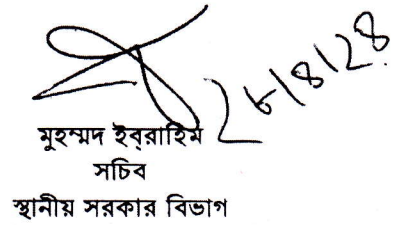 ২৮/৪/২৪
মুহম্মদ ইব্‌রাহিম
সচিব
স্থানীয় সরকার বিভাগ